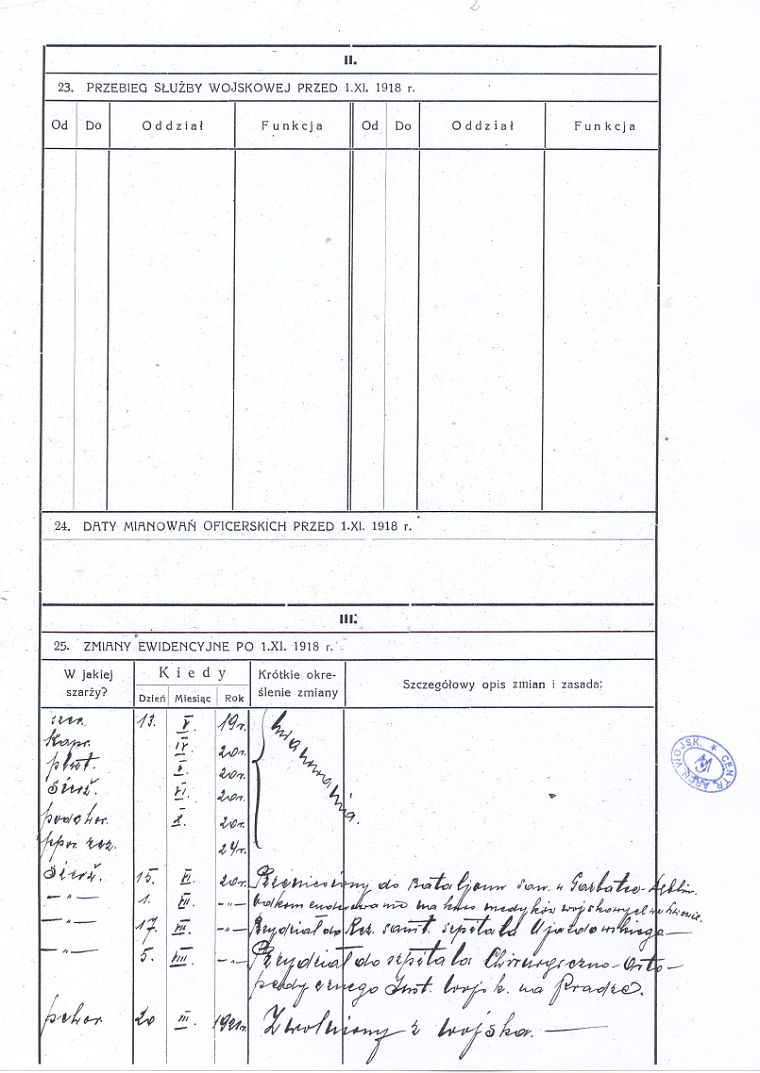 II.
23. PRZEBIEG SŁUŻBY WOJSKOWEJ PRZED 1.XI. 1918 r.
Od Do Oddział Funkcja Od Do Oddział Funkcja
24. DATY MIANOWAŃ OFICERSKICH PRZED 1.XI. 1918 r.
III.
25. ZMIANY EWIDENCYJNE PO 1.XI. 1918 r.
W jakiej szarży? Kiedy Krótkie okre-
ślenie zmiany Szczegółowy opis zmian i zasada:
Dzień Miesiąc Rok
szer. 13. V. 19r. mianowania.
Kapr. IV. 20r.
plut. V. 20r.
Sierż. VI. 20r.
podchor. X. 20r.
ppor. rez. 24r.
Sierż. 15. VI. 20r. Przeniesiony do Bataljonu San. w Garbatce-Dęblin.
—„— 1. VII. —„— Odkomenderowano na kurs medyków wojskowych
—„— 17. VII. —„— Przydział do Rez. sanit. szpitala Ujazdowskiego—
—„— 5. VIII. —„— Przydział do szpitala Chirurgiczno-Orto-
pedycznego Inst. Wojsk. na Pradze.
pchor. 20 III. 1921r. Zwolniony z wojska.
CENTR. ARCH. WOJSK.